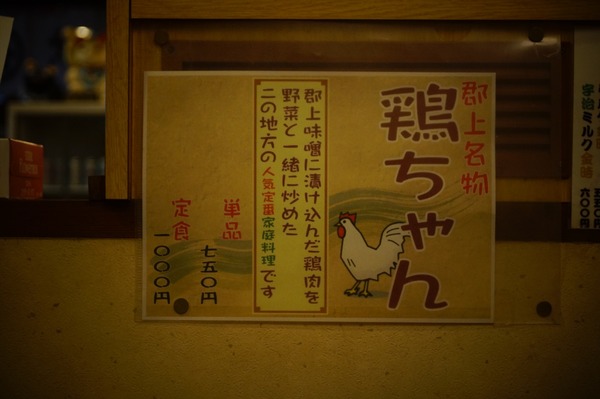 郡上名物
鶏ちゃん
郡上味噌に漬け込んだ鶏肉を
野菜と一緒に炒めた
この地方の人気定番家庭料理です
単品
七五〇円
定食
一〇〇〇円
宇治ミルク金時
六〇〇円